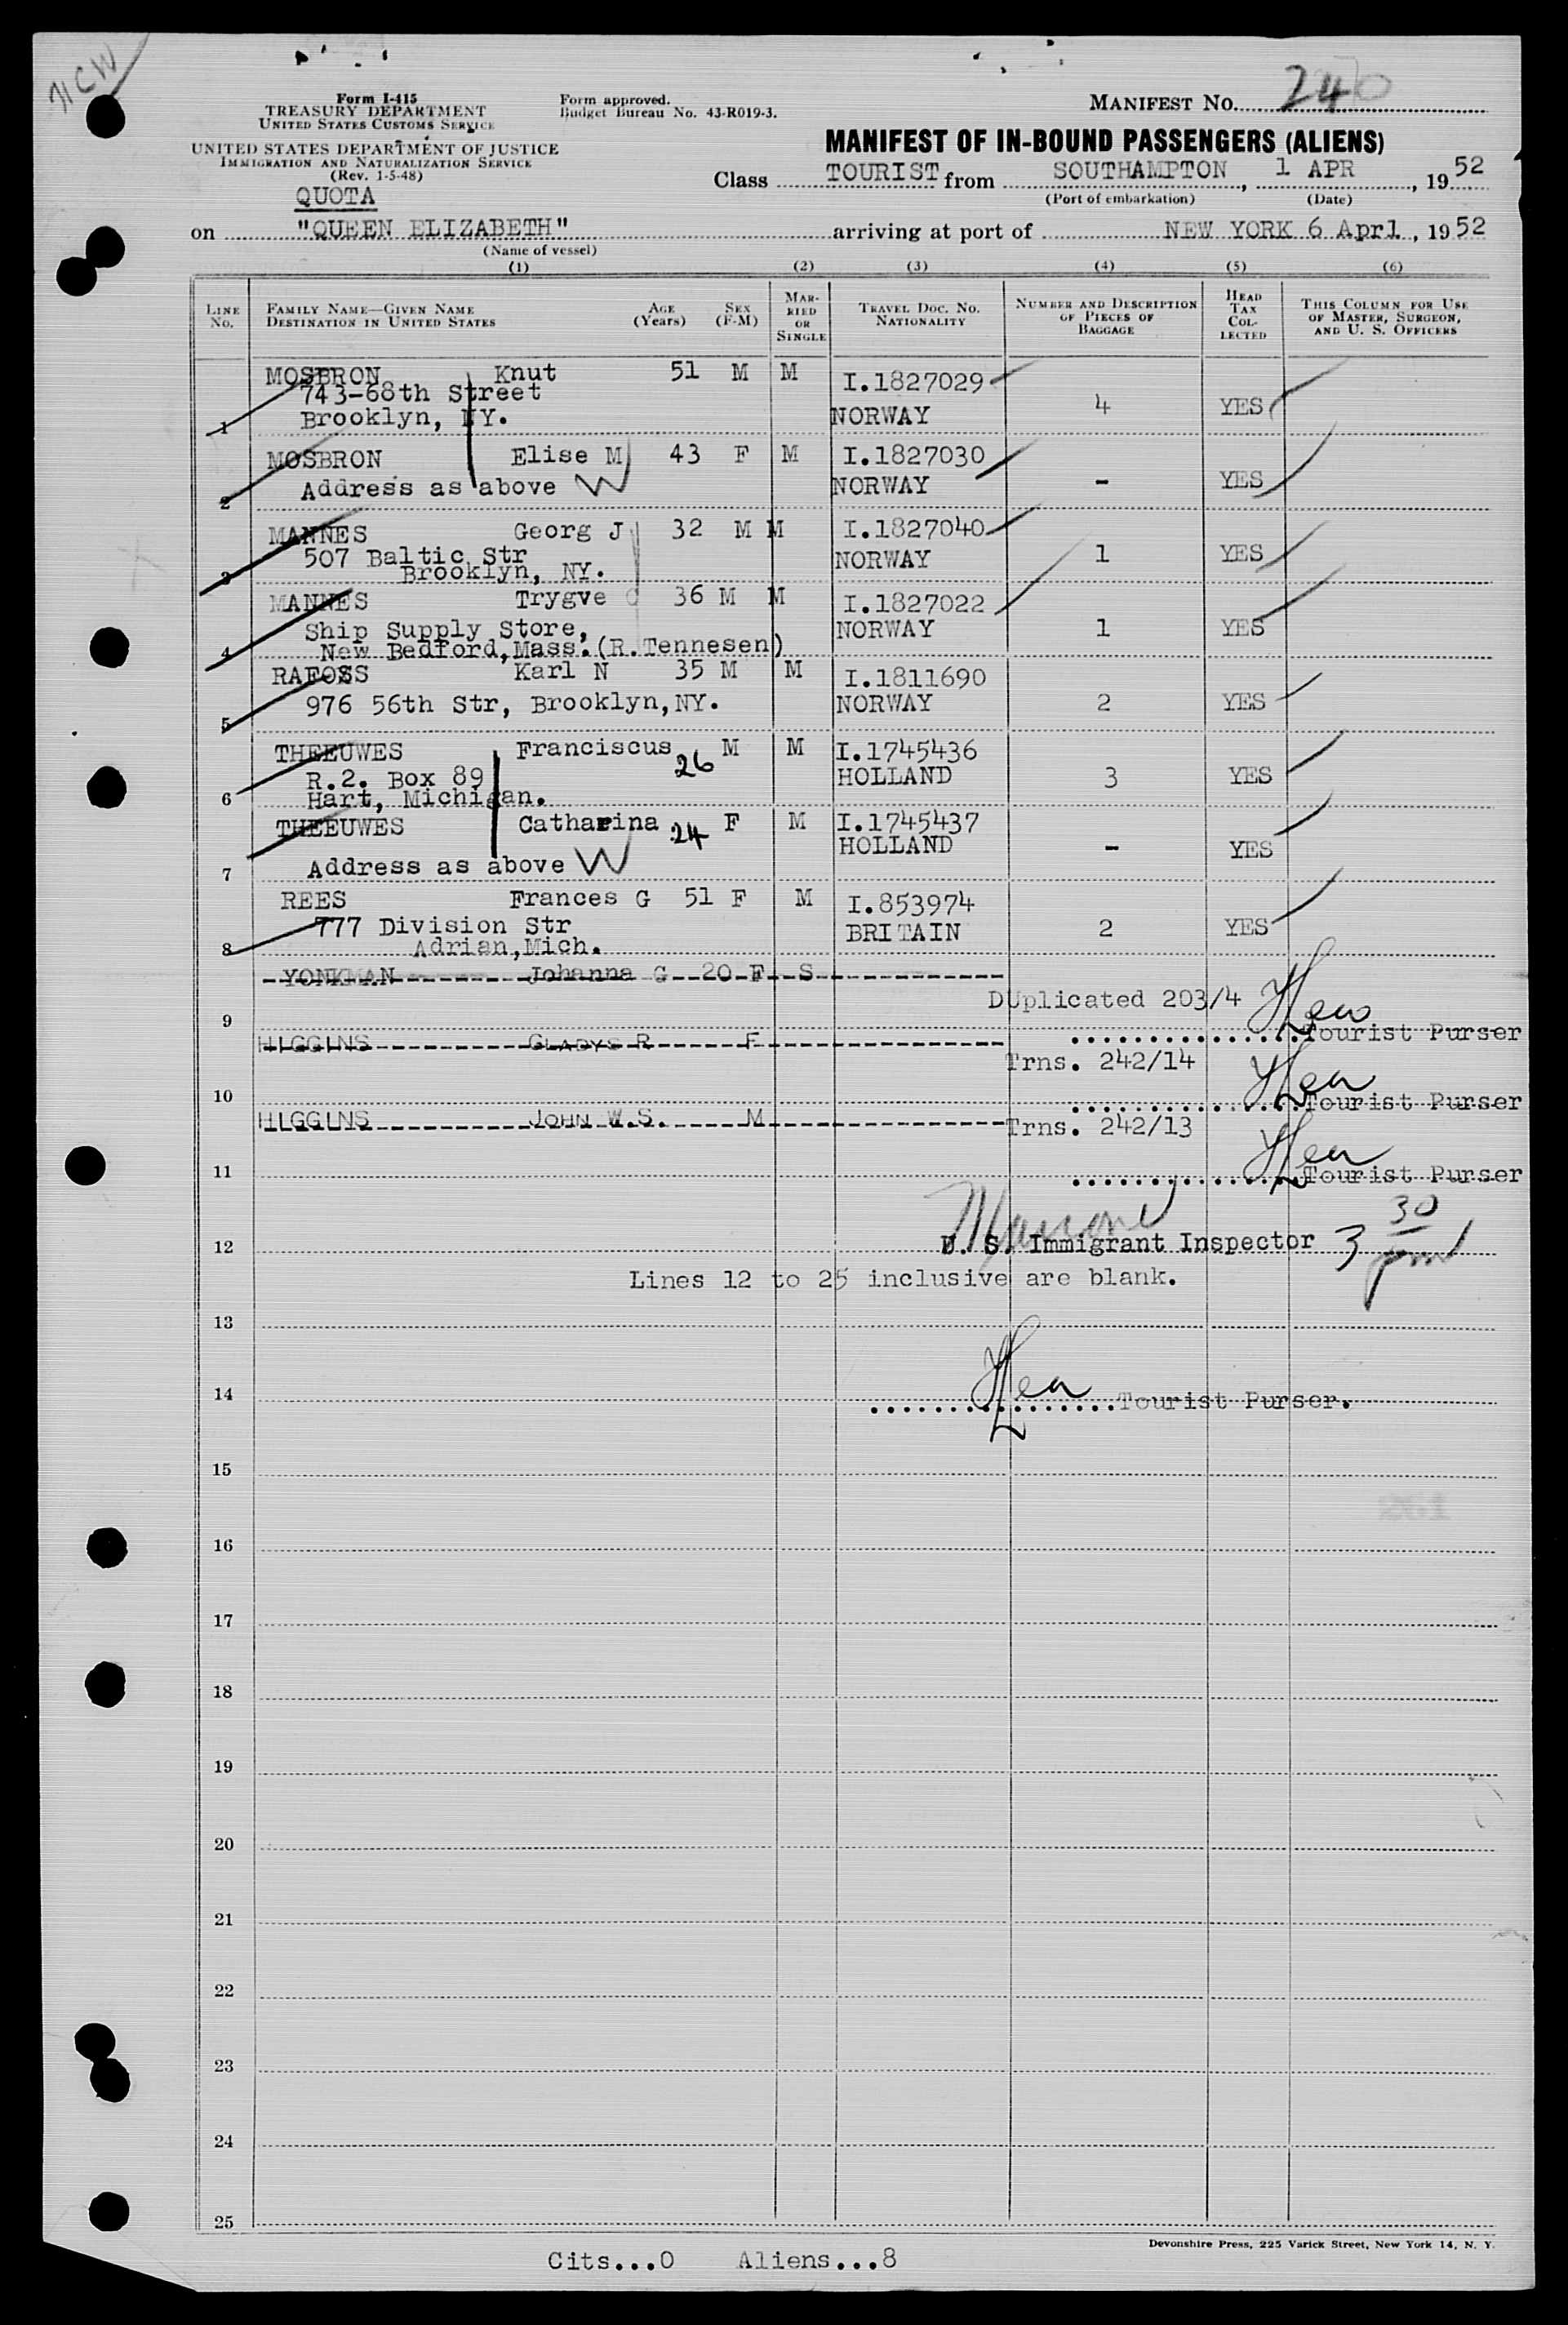 71CW
Form I-415
TREASURY DEPARTMENT
UNITED STATES CUSTOMS SERVICE
UNITED STATES DEPARTMENT OF JUSTICE
IMMIGRATION AND NATURALIZATION SERVICE
(Rev. 1-5-48)
QUOTA
Form approved.
Budget Bureau No. 43-R019-3.
MANIFEST NO. 240
MANIFEST OF IN-BOUND PASSENGERS (ALIENS)
Class TOURIST from SOUTHAMPTON, 1 APR, 1952
(Port of embarkation) (Date)
on "QUEEN ELIZABETH" arriving at port of NEW YORK 6 Aprl, 1952
(Name of vessel)
(1) (2) (3) (4) (5) (6)
LINE NO. FAMILY NAME—GIVEN NAME DESTINATION IN UNITED STATES AGE (Years) SEX (F-M) MARRIED OR SINGLE TRAVEL DOC. NO. NATIONALITY NUMBER AND DESCRIPTION OF PIECES OF BAGGAGE HEAD TAX COLLECTED THIS COLUMN FOR USE OF MASTER, SURGEON, AND U. S. OFFICERS
MOSBRON Knut 51 M M I.1827029
743-68th Street
1 Brooklyn, NY. NORWAY 4 YES
MOSBRON Elise M 43 F M I.1827030
2 Address as above W NORWAY - YES
MANNES Georg J 32 M M I.1827040
507 Baltic Str NORWAY 1 YES
3 Brooklyn, NY.
MANNES Trygve C 36 M M I.1827022
Ship Supply Store, NORWAY 1 YES
4 New Bedford, Mass. (R.Tennesen)
RAFOSS Karl N 35 M M I.1811690
5 976 56th Str, Brooklyn, NY. NORWAY 2 YES
THEEUWES Franciscus 26 M M I.1745436
R.2. Box 89 HOLLAND 3 YES
6 Hart, Michigan.
THEEUWES Catharina 24 F M I.1745437
HOLLAND - YES
7 Address as above W
REES Frances G 51 F M I.853974
777 Division Str BRITAIN 2 YES
8 Adrian, Mich.
YONKMAN Johanna G 20 F S
DUplicated 203/4
9 Tourist Purser
HIGGINS GLADYS R F
Trns. 242/14
10 Tourist Purser
HIGGINS JOHN W.S. M
Trns. 242/13
11 Tourist Purser
12 U. S. Immigrant Inspector 3 30 pm
Lines 12 to 25 inclusive are blank.
13
14 Tourist Purser.
15
261
16
17
18
19
20
21
22
23
24
25
Devonshire Press, 225 Varick Street, New York 14, N. Y.
Cits...0 Aliens...8